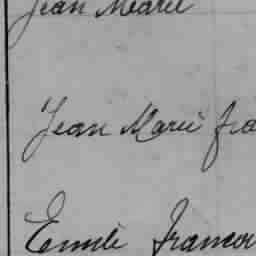 Jean Marie
Jean Marie fra
Emile Francoi